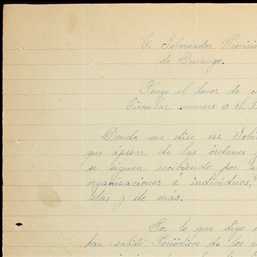 C. Gobernador Provisio
de Durango.
Tengo el honor de
Circular numero
Donde me dise ese Gobi
que apesar de las órdenes
se siguen recibiendo por
organizaciones é individuos,
y de mas.
Por lo que digo
han salido Periódicos de los